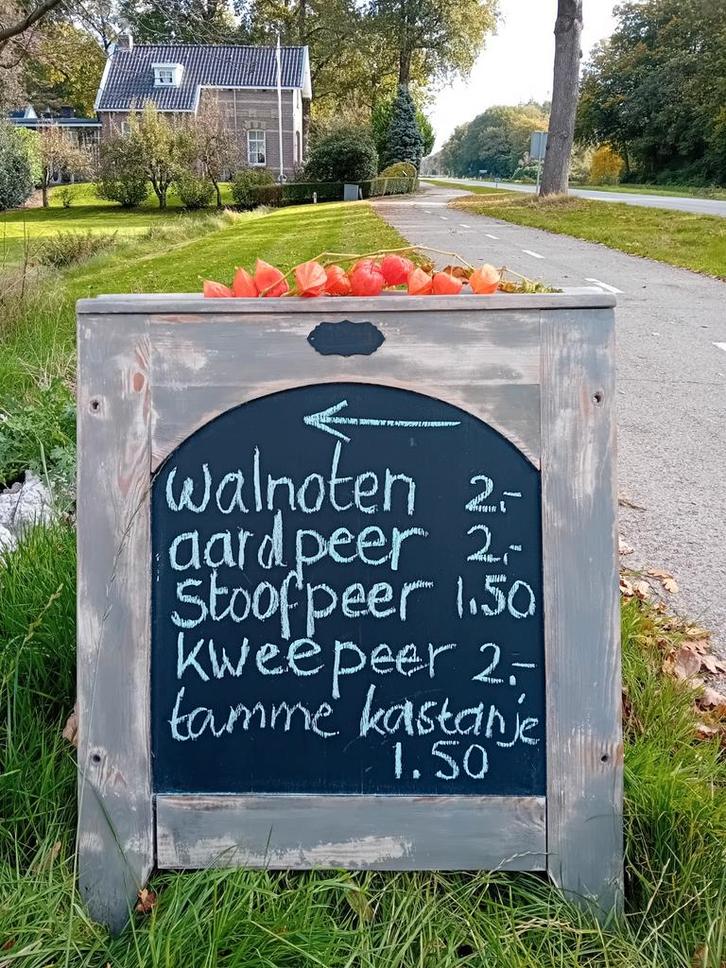 walnoten 2,-
aardpeer 2,-
Stoofpeer 1,50
kweepeer 2,-
tamme kastanje
1.50